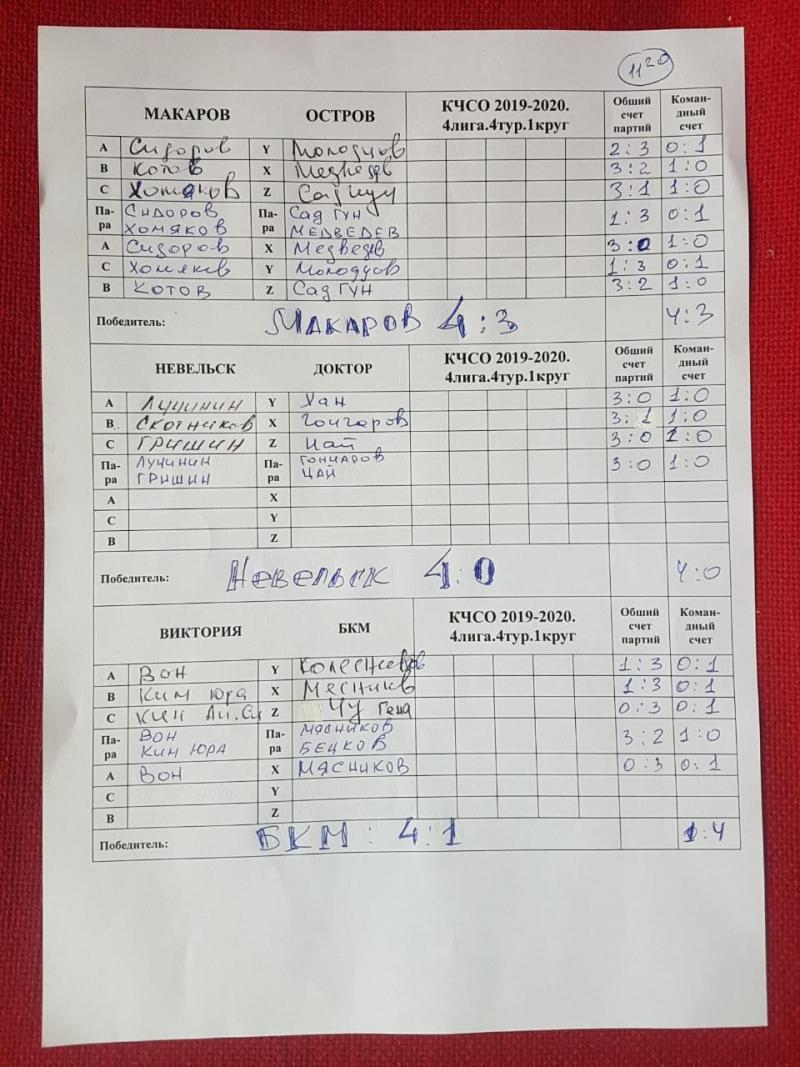 11 20
МАКАРОВ ОСТРОВ КЧСО 2019-2020. 4лига.4тур.1круг Общий счет партий Коман-дный счет
A Сидоров Y Молодцов 2:3 0:1
B Котов X Медведев 3:2 1:0
C Хомяков Z Сад Гун 3:1 1:0
Па-ра Сидоров Па-ра Сад Гун 1:3 0:1
Хомяков Медведев
A Сидоров X Медведев 3:0 1:0
C Хомяков Y Молодцов 1:3 0:1
B Котов Z Сад Гун 3:2 1:0
Победитель: Макаров 4:3 4:3
НЕВЕЛЬСК ДОКТОР КЧСО 2019-2020. 4лига.4тур.1круг Общий счет партий Коман-дный счет
A Лучинин Y Хан 3:0 1:0
B Скотников X Гончаров 3:1 1:0
C Гришин Z Цай 3:0 1:0
Па-ра Лучинин Па-ра Гончаров 3:0 1:0
Гришин Цай
A X
C Y
B Z
Победитель: Невельск 4:0 4:0
ВИКТОРИЯ БКМ КЧСО 2019-2020. 4лига.4тур.1круг Общий счет партий Коман-дный счет
A Вон Y 1:3 0:1
B Ким Юра X Мясников 1:3 0:1
C Ким Z Чу Гена 0:3 0:1
Па-ра Вон Па-ра Мясников 3:2 1:0
Ким Юра Бецков
A Вон X Мясников 0:3 0:1
C Y
B Z
Победитель: БКМ: 4:1 1:4